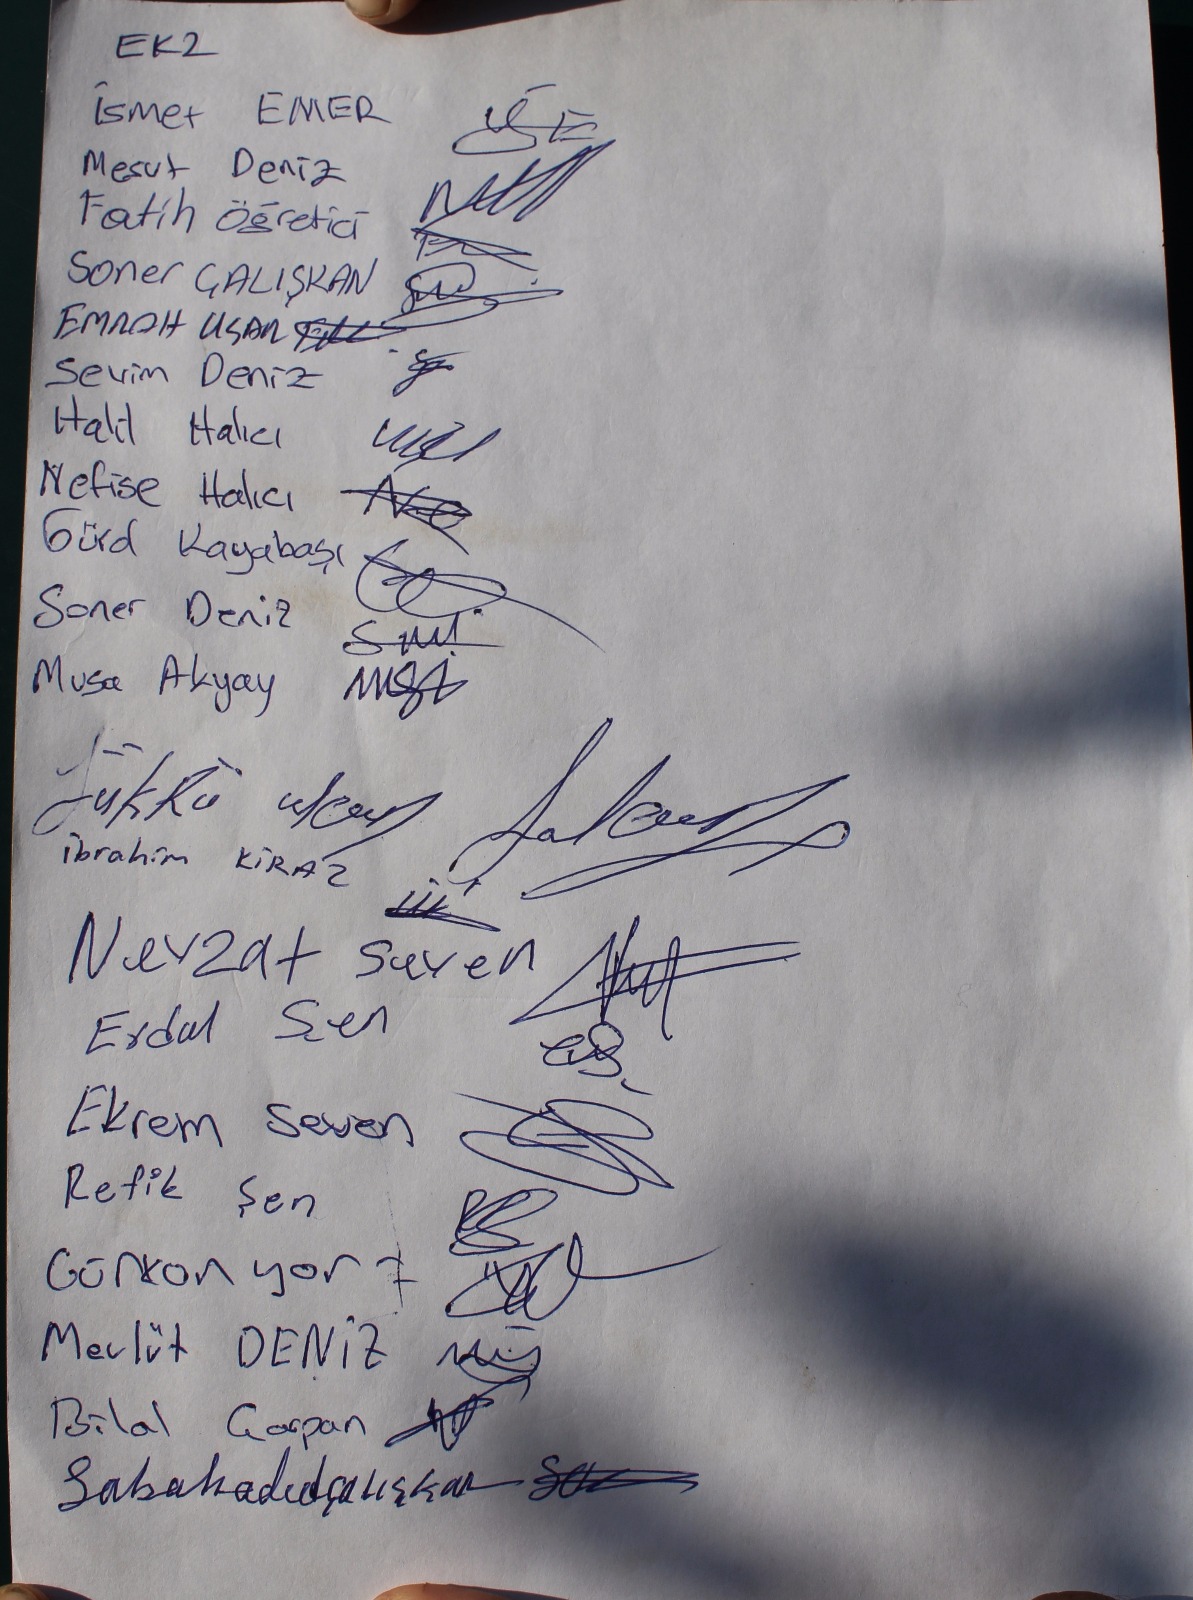 EK2
İsmet EMER
Mesut Deniz
Fatih Öğretici
Soner ÇALIŞKAN
EMRAH UŞAR
Sevim Deniz
Halil Halıcı
Nefise Halıcı
Kayabaşı
Soner Deniz
Musa Akyay
İbrahim KİRAZ
Nevzat Seven
Erdal Şen
Ekrem Seven
Refik Şen
Gürkan
Mevlüt DENİZ
Bilal Çarpan
çalışkan